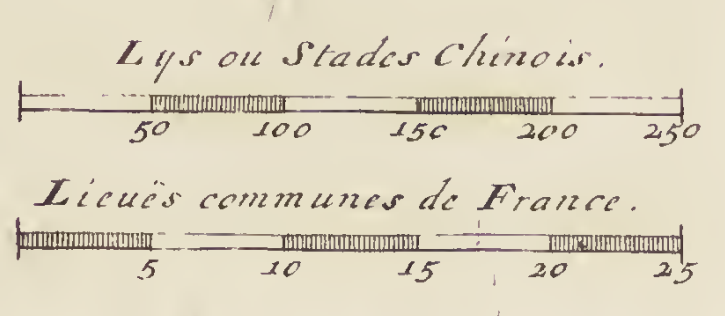 Lys ou Stades Chinois.
50 100 150 200 250
Lieuës communes de France.
5 10 15 20 25